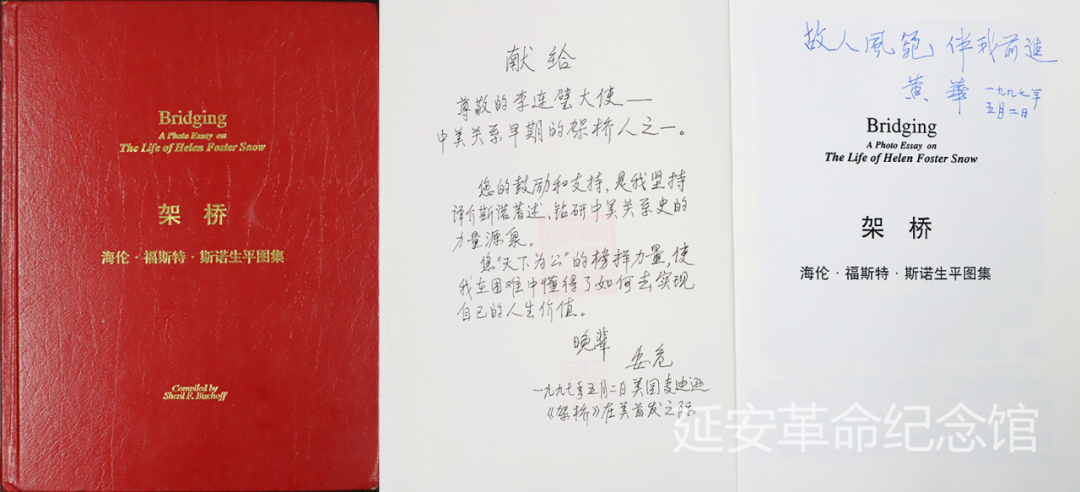 Bridging
A Photo Essay on
The Life of Helen Foster Snow
架 桥
海伦·福斯特·斯诺生平图集
Compiled by
Sheril F. Bischoff
献 给
尊敬的李连璧大使——
中美关系早期的架桥人之一。
您的鼓励和支持，是我坚持
译介斯诺著述、钻研中美关系史的
力量源泉。
您“天下为公”的榜样力量，使
我在困难中懂得了如何去实现
自己的人生价值。
晚辈
安危
一九九七年五月二日美国麦迪逊
《架桥》在美首发之际
故人風範，伴我前進
黄 華
一九九七年
五月二日
Bridging
A Photo Essay on
The Life of Helen Foster Snow
架 桥
海伦·福斯特·斯诺生平图集
延安革命纪念馆